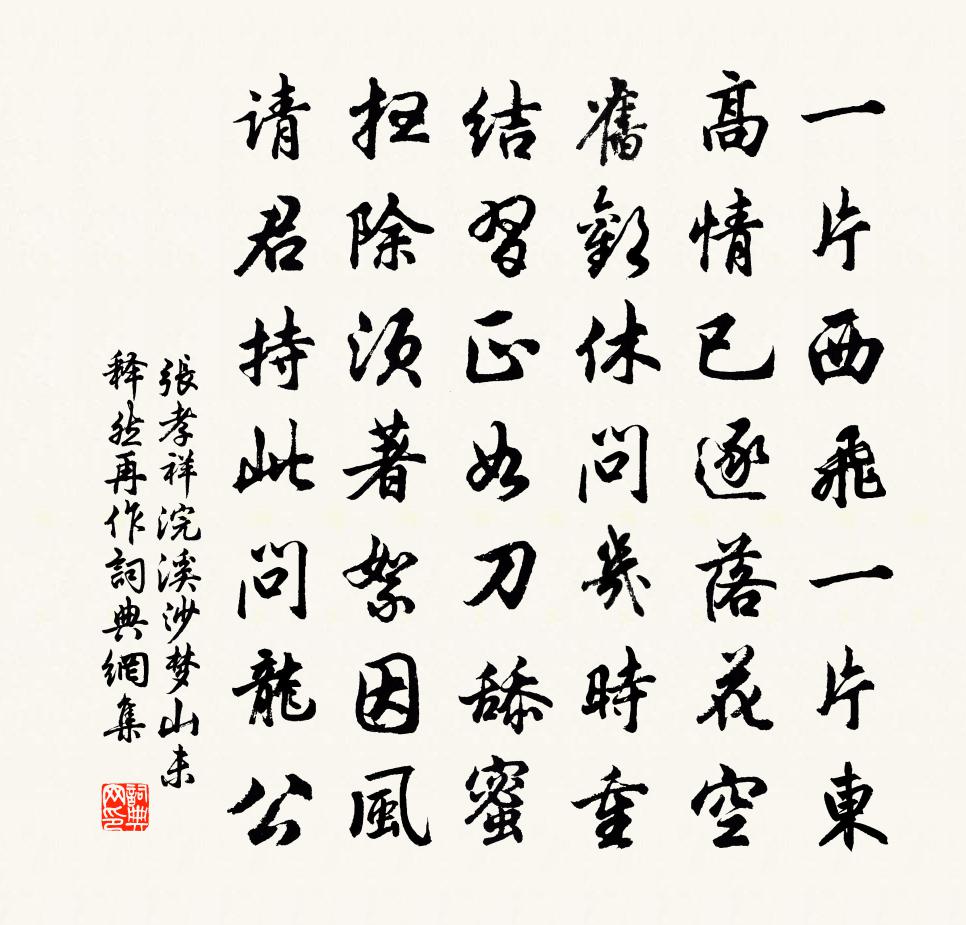 一片西飛一片東
高情已逐落花空
舊歡休問幾時重
结習正如刀舔蜜
掃除须著絮因風
请君持此问龍公
張孝祥浣溪沙梦山未
释然再作詞典網集
詞典网印